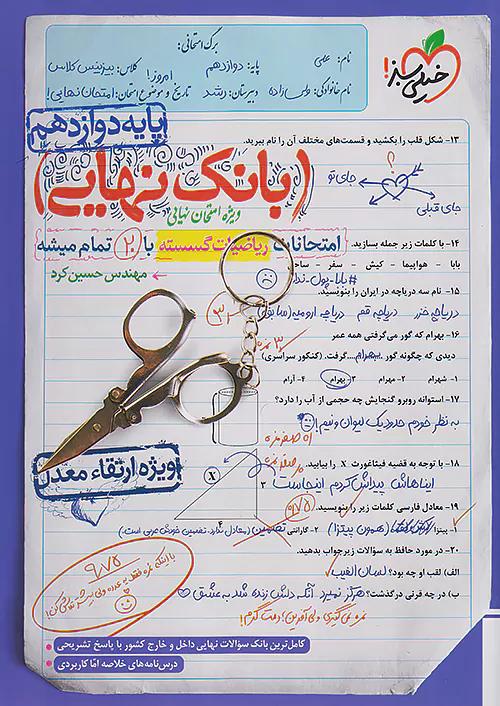 برگ امتحانی:
نام: علی
پایه: دوازدهم
کلاس: بیزینس کلاس
نام خانوادگی:
دبیرستان: رشد
تاریخ و موضوع امتحان: امروز! امتحان نهایی!
خیلی سبز!
پایه دوازدهم
۱۳- شکل قلب را بکشید و قسمت‌های مختلف آن را نام ببرید.
(بانک نهایی)
ویژه امتحان نهایی
جای تو
جای قبلی
امتحانات ریاضیات گسسته با ۲۰ تمام میشه
مهندس حسین کرد
۱۴- با کلمات زیر جمله بسازید.
بابا - هواپیما - کیش - سفر - ساحل
#بابا_پول_نداره
۱۵- نام سه دریاچه در ایران را بنویسید.
دریاچه خزر دریاچه قم دریاچه ارومیه (سابق)
۱۶- بهرام که گور می‌گرفتی همه عمر
دیدی که چگونه گور ..بهرام.. گرفت. (کنکور سراسری)
۱- شهرام ۲- مهرام ۳- بهرام ۴- آرام
۳ نمره
۱۷- استوانه روبرو گنجایش چه حجمی از آب را دارد؟
به نظر خودم حدود یک لیوان و نیم!
ویژه ارتقاء معدل
۱۸- با توجه به قضیه فیثاغورث X را بیابید.
ایناهاش پیداش کردم اینجاست
X
۳
۴
۱۹- معادل فارسی کلمات زیر را بنویسید.
۱- پیتزا (همون پیتزا) ۲- گارانتی تضمین (معادل نداره. تضمین خودش عربی است.)
۲۰- در مورد حافظ به سؤالات زیر جواب بدهید.
الف) لقب او چه بود؟ لسان الغیب
ب) در چه قرنی درگذشت؟ هرگز نمیرد آنکه دلش زنده شد به عشق
۹/۷۵
نمره نمی‌گیری ولی آفرین! دمت گرم!
کامل‌ترین بانک سؤالات نهایی داخل و خارج کشور با پاسخ تشریحی
درس‌نامه‌های خلاصه امّا کاربردی